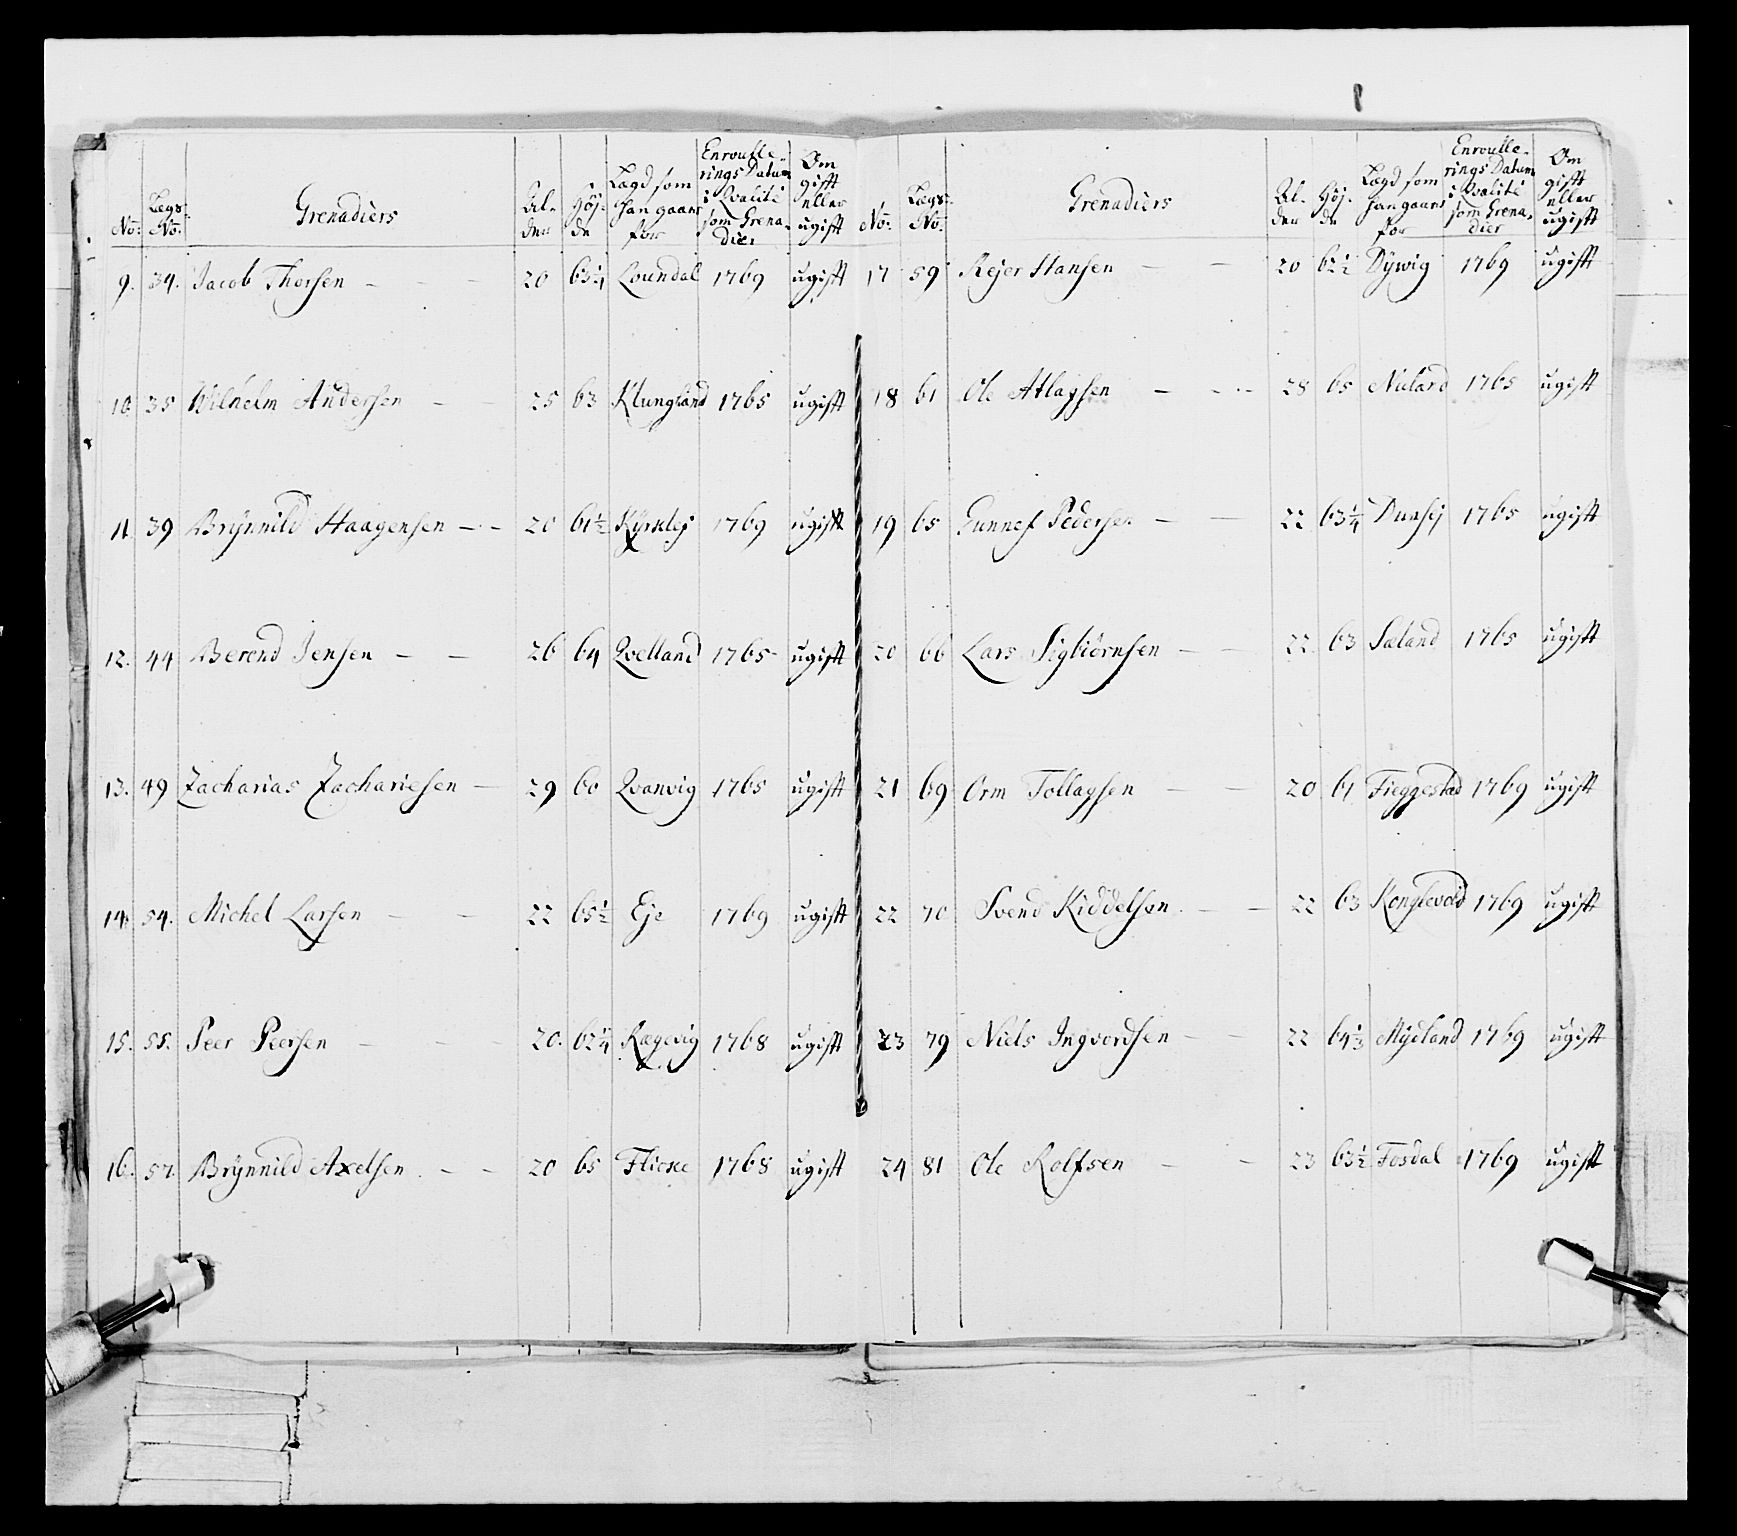 No: Lægs No: Grenadiers Al-der Höj-de Lægd som han gaar for Enroulle-rings Datum i Qvalité som Grena-dier Om gifft eller ugifft
9. 34. Jacob Thorsen 20 63 1/4 Loundal 1769 ugifft
10. 35 Wilhelm Andersen 25 63 Klungland 1765 ugifft
11 39 Brÿnnild Haagensen 20 61 1/2 Kÿrklej 1769 ugifft
12. 44 Berend Jensen 26 64 Qvelland 1765 ugifft
13. 49 Zacharias Zachariesen 29 60 Qvanvig 1765 ugifft
14. 54. Michel Larsen 22 65 1/2 Eje 1769 ugifft
15. 55. Peer Peersen 20. 62 1/4 Rægevig 1768 ugifft
16. 57. Brÿnnild Axelsen 20 65 Flicke 1768 ugifft
No: Lægs No: Grenadiers Al-der Höj-de Lægd som han gaar for Enroulle-rings Datum i Qvalité som Grena-dier Om gifft eller ugifft
17 59 Rejer Hansen 20 62 1/2 Dÿwig 1769 ugifft
18 61 Ole Atlagsen 28 65 1765 ugifft
19 65 Gunnef Pedersen 22 63 1/4 1765 ugifft
20 66 Lars Sigbiörnsen 22 63 Sæland 1765 ugifft
21 69 Orm Tollagsen 20 61 Fieggestad 1769 ugifft
22 70 Svend Kiddelsen 22 63 Konglevold 1769 ugifft
23 79 Niels Ingvordsen 22 64 1/3 Mÿdland 1769 ugifft
24 81 Ole Rolfsen 23 63 1/2 Fosdal 1769 ugifft